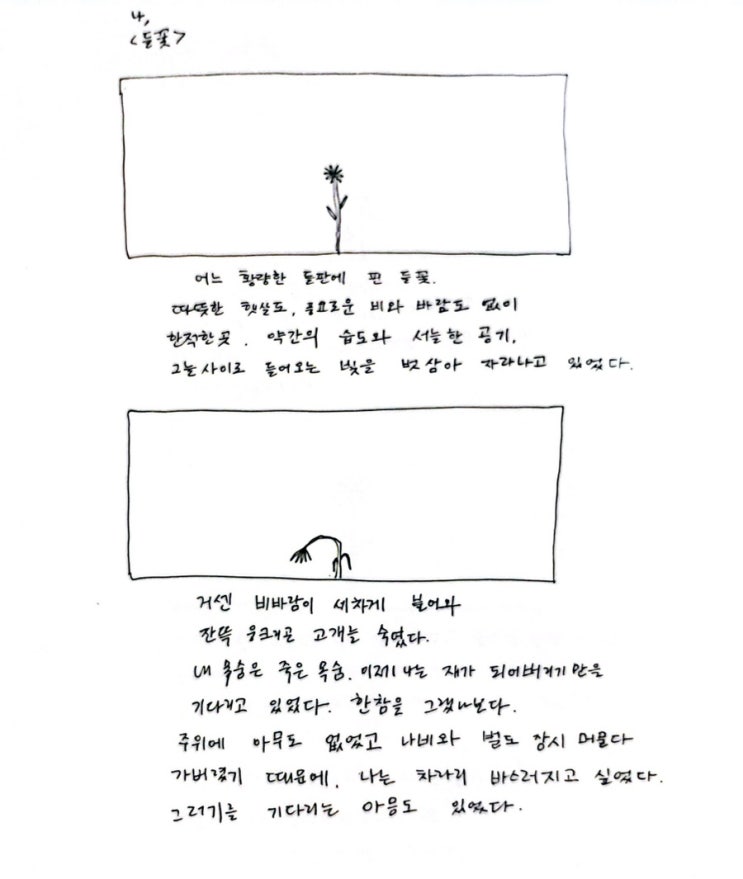 나,
<들꽃>
어느 황량한 들판에 핀 들꽃.
따뜻한 햇살도, 풍요로운 비와 바람도 없이
한적한 곳. 약간의 습도와 서늘한 공기,
그늘 사이로 들어오는 빛을 벗삼아 자라나고 있었다.
거센 비바람이 세차게 불어와
잔뜩 웅크리곤 고개를 숙였다.
내 목숨은 죽은 목숨. 이제 나는 재가 되어버리기 만을
기다리고 있었다. 한참을 그랬나보다.
주위에 아무도 없었고 나비와 벌도 잠시 머물다
가버렸기 때문에, 나는 차라리 바스러지고 싶었다.
그러기를 기다리는 마음도 있었다.